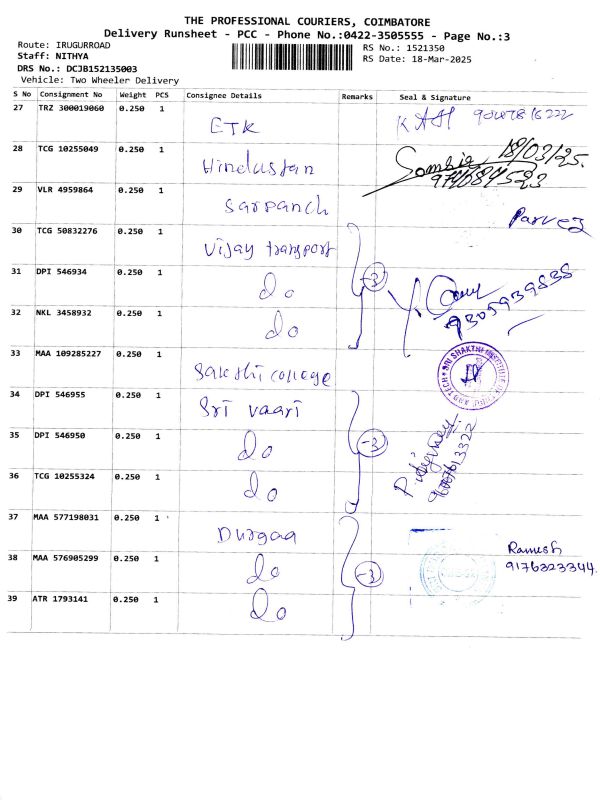 THE PROFESSIONAL COURIERS, COIMBATORE
Delivery Runsheet - PCC - Phone No.:0422-3505555 - Page No.:3
Route: IRUGURROAD
Staff: NITHYA
DRS No.: DCJB152135003
Vehicle: Two Wheeler Delivery
RS No.: 1521350
RS Date: 18-Mar-2025
S No Consignment No Weight PCS Consignee Details Remarks Seal & Signature
27 TRZ 300019060 0.250 1 ETK
28 TCG 10255049 0.250 1 Hindustan 18/03/25.
29 VLR 4959864 0.250 1 Sarpanch Parvez
30 TCG 50832276 0.250 1 Vijay transport
31 DPI 546934 0.250 1 do -3
32 NKL 3458932 0.250 1 do
33 MAA 109285227 0.250 1 Sakthi college
34 DPI 546955 0.250 1 Sri vaari
35 DPI 546950 0.250 1 do -3
36 TCG 10255324 0.250 1 do
37 MAA 577198031 0.250 1 Durgaa
38 MAA 576905299 0.250 1 do -3 Ramesh
9176323344.
39 ATR 1793141 0.250 1 do